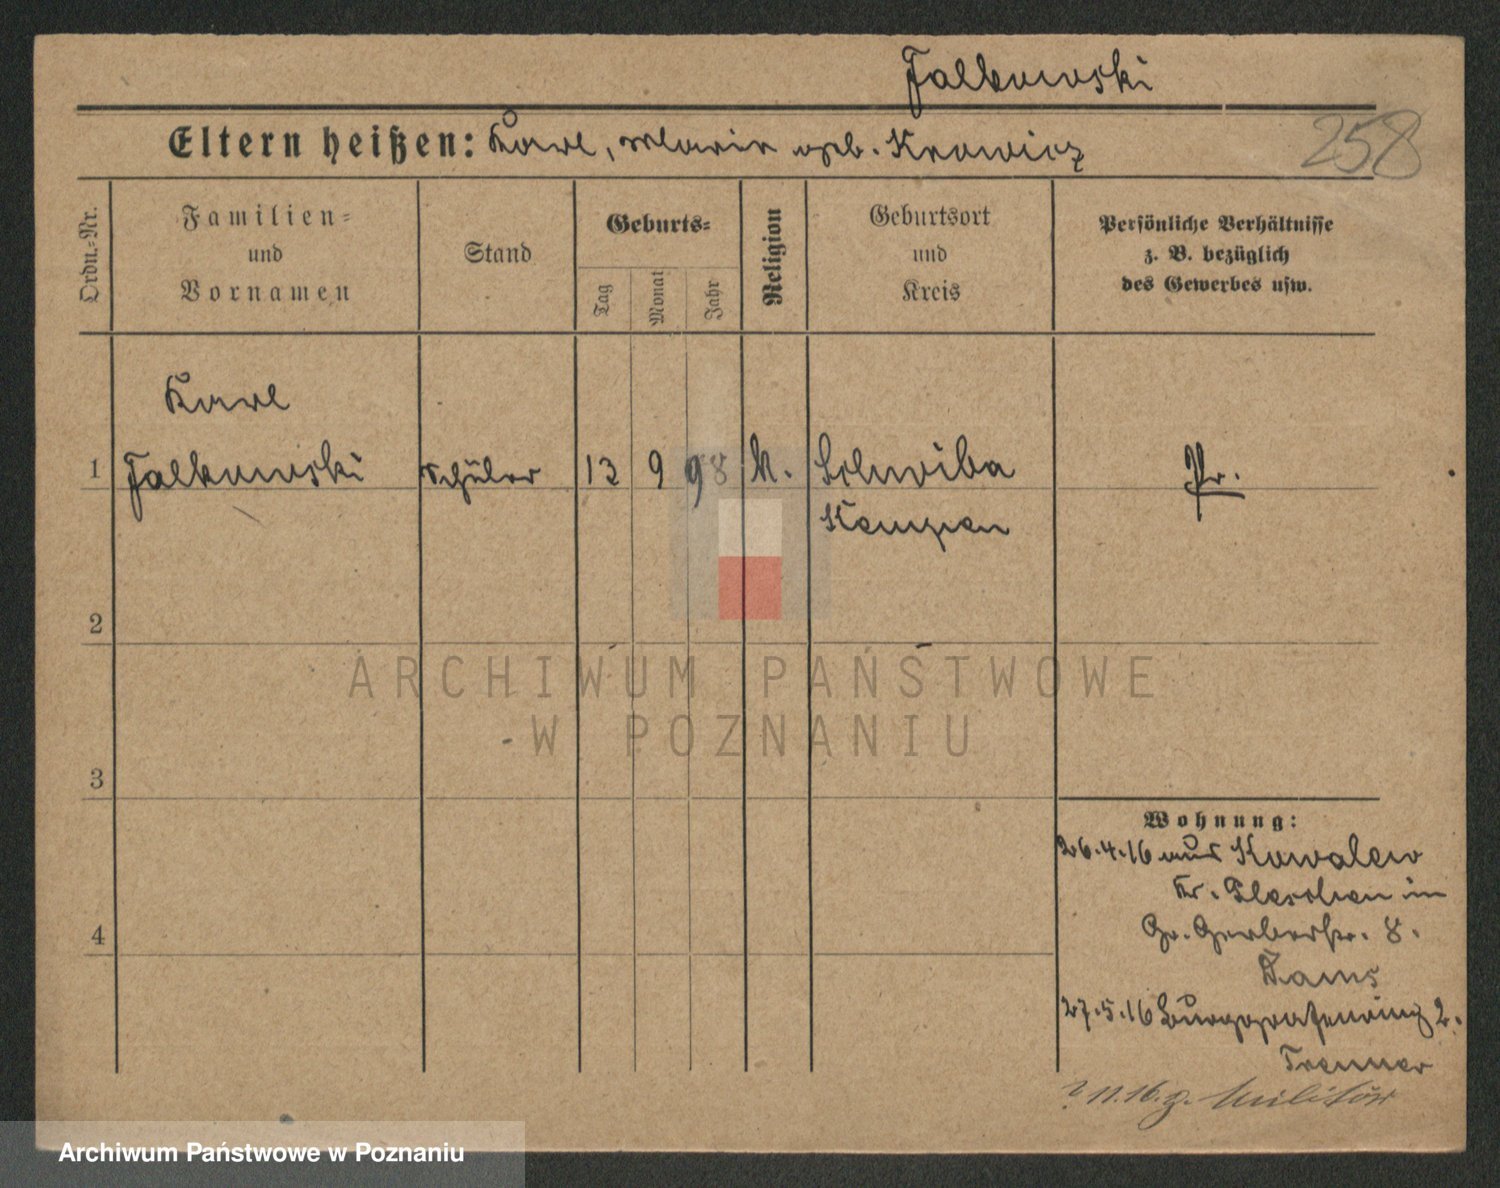 Falkowski
Eltern heißen: Karl, Marie geb. Krowicz
258
Ordn.-Nr.
Familien-
und
Vornamen
Stand
Geburts-
Tag
Monat
Jahr
Religion
Geburtsort
und
Kreis
Persönliche Verhältnisse
z. B. bezüglich
des Gewerbes usw.
Karl
1 Falkowski Schüler 13 9 98 k. Schwiba Pr.
Kempen
2
3
4
Wohnung:
26.4.16 aus Kowalew
Kr. Pleschen in
Gr. Gerberstr. 8.
27.5.16 Burggrafenring 2.
Tremmer
11.16. z. Militär
ARCHIWUM PAŃSTWOWE
W POZNANIU
Archiwum Państwowe w Poznaniu